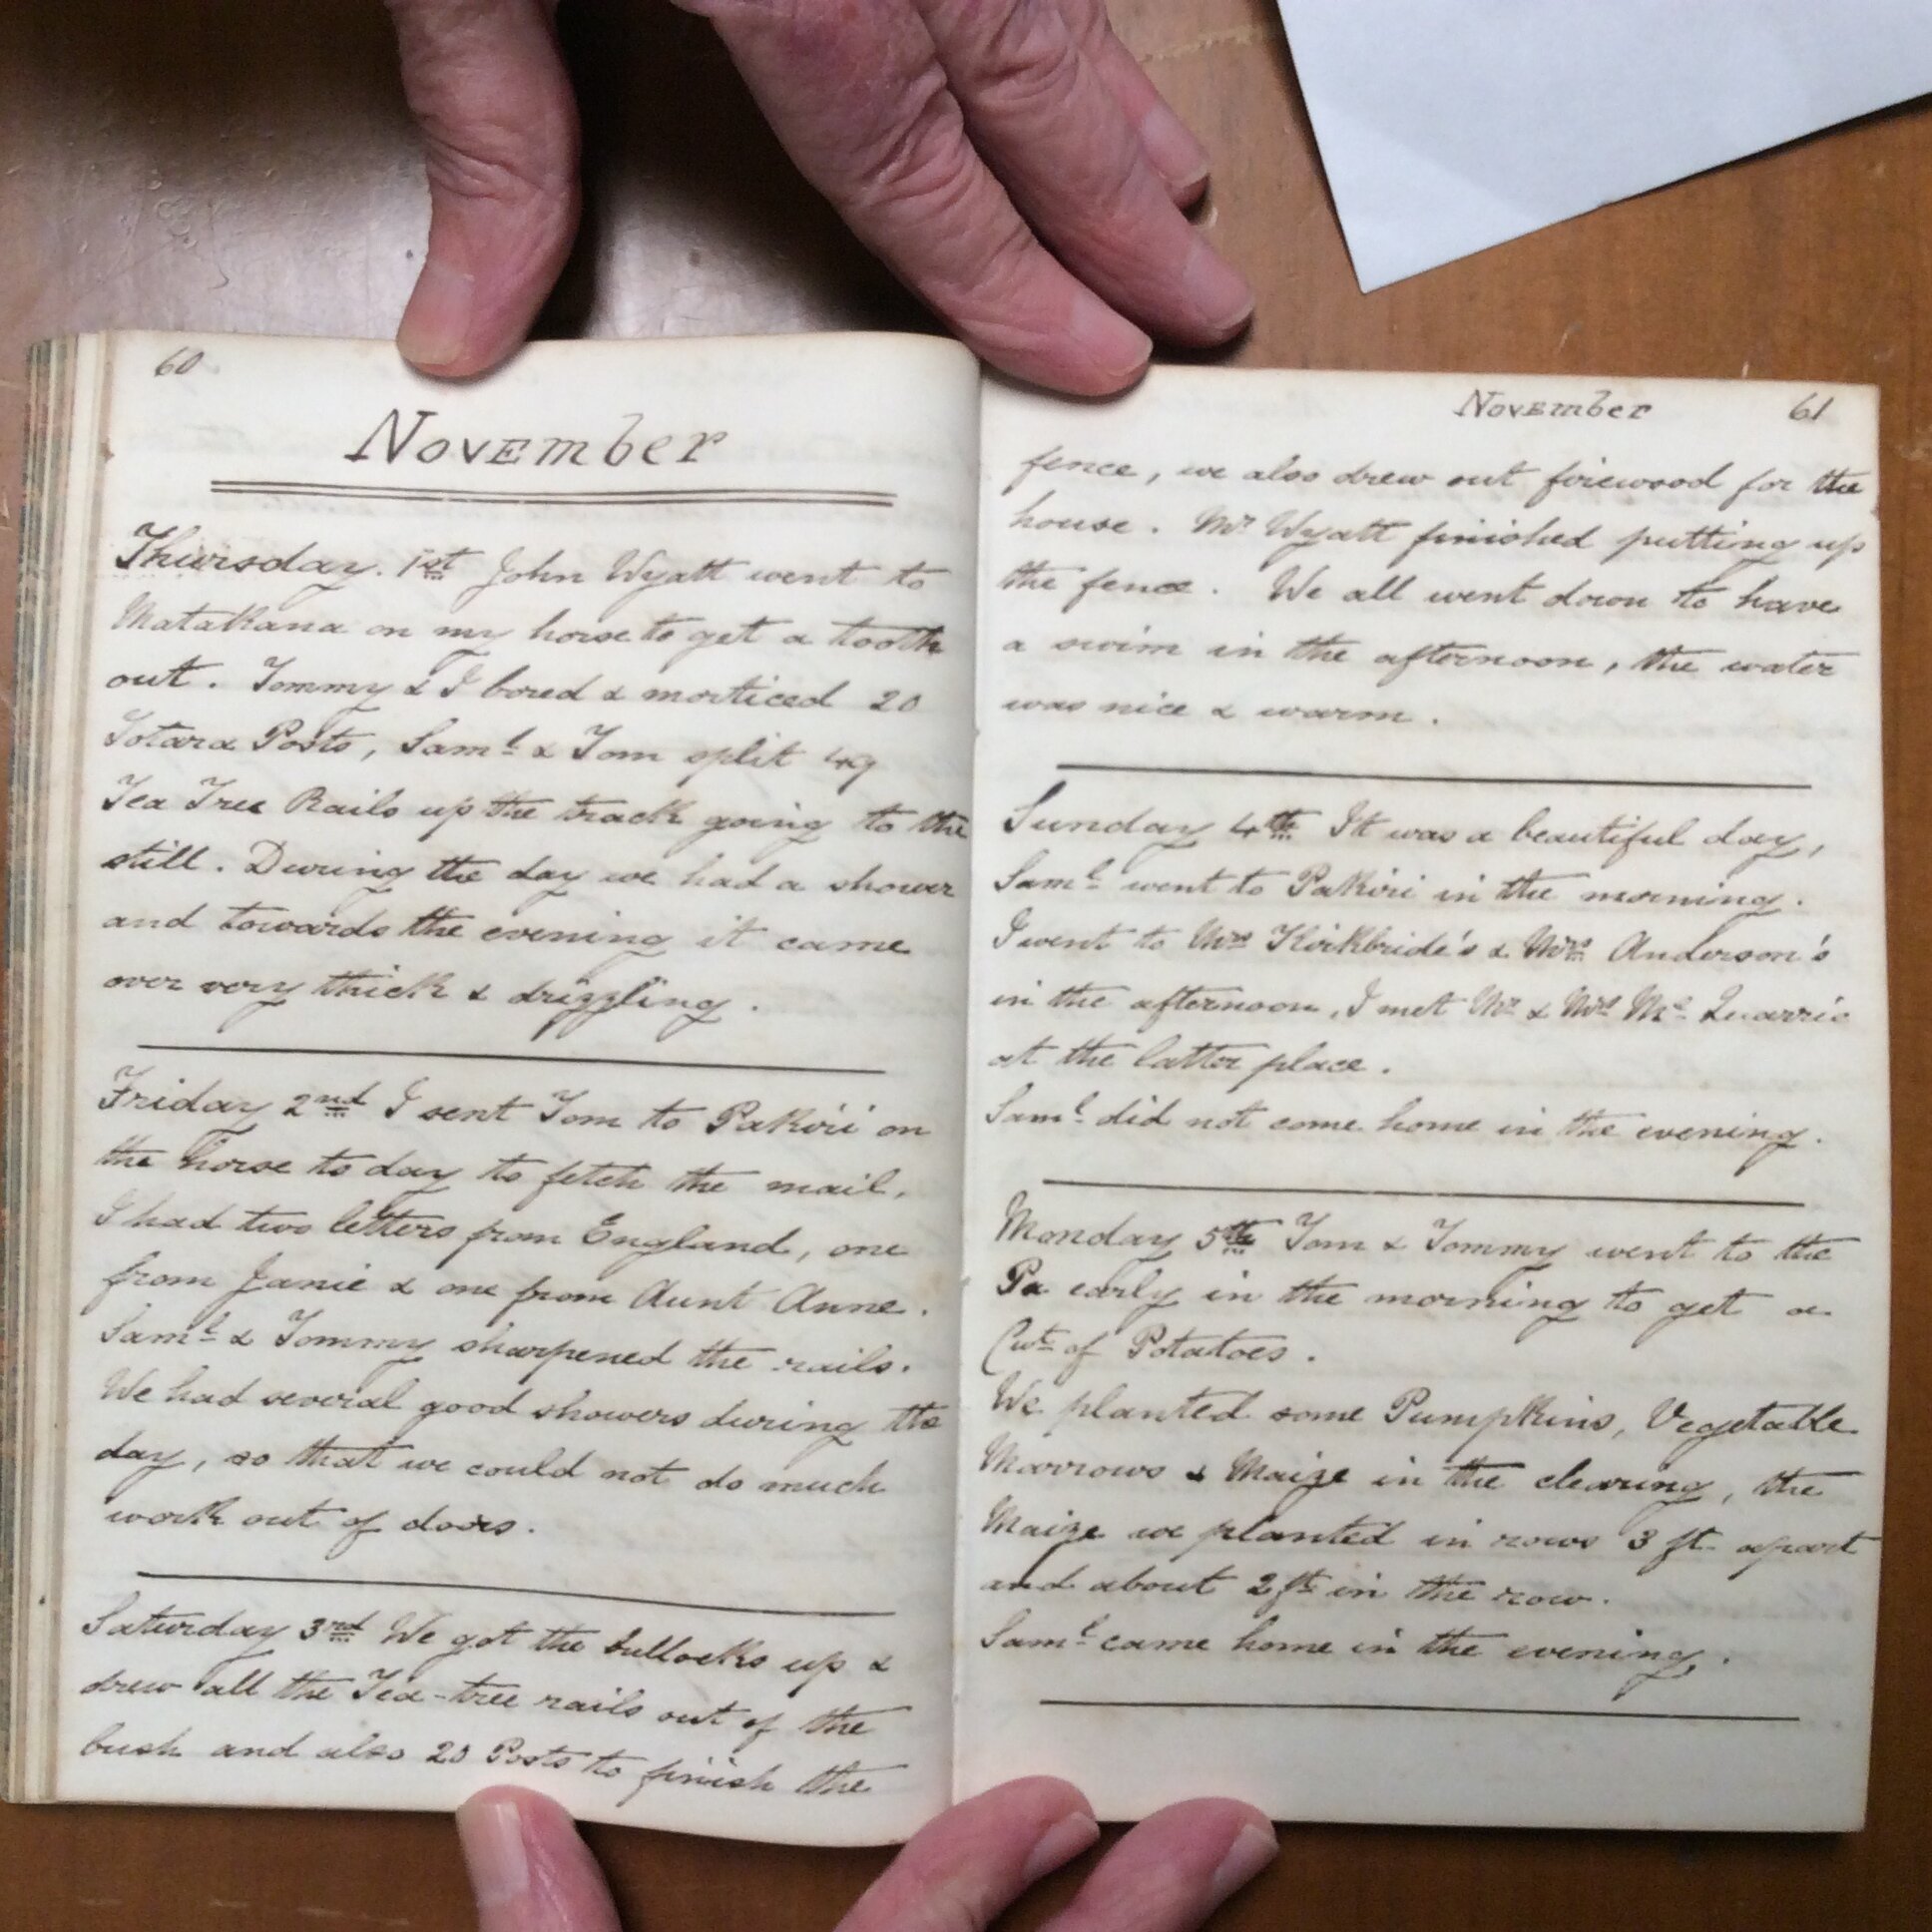 60
November
Thursday. 1st John Wyatt went to
Matakana on my horse to get a tooth
out. Tommy & I bored & morticed 20
Totara Posts, Saml & Tom split 49
Tea Tree Rails up the track going to the
still. During the day we had a shower
and towards the evening it came
over very thick & drizzling.
Friday 2nd I sent Tom to Pakiri on
the horse to day to fetch the mail,
I had two letters from England, one
from Janie & one from Aunt Anne.
Saml & Tommy sharpened the rails.
We had several good showers during the
day, so that we could not do much
work out of doors.
Saturday 3rd We got the bullocks up &
drew all the Tea-tree rails out of the
bush and also 20 Posts to finish the
November 61
fence, we also drew out firewood for the
house. Mr Wyatt finished putting up
the fence. We all went down to have
a swim in the afternoon, the water
was nice & warm.
Sunday 4th It was a beautiful day,
Saml went to Pakiri in the morning.
I went to Mrs Kirkbride's & Mrs Anderson's
in the afternoon, I met Mr & Mrs Mc Quarrie
at the latter place.
Saml did not come home in the evening.
Monday 5th Tom & Tommy went to the
Pa early in the morning to get a
Cwt of Potatoes.
We planted some Pumpkins, Vegetable
Marrows & Maize in the clearing, the
Maize we planted in rows 3 ft apart
and about 2 ft in the row.
Saml came home in the evening.